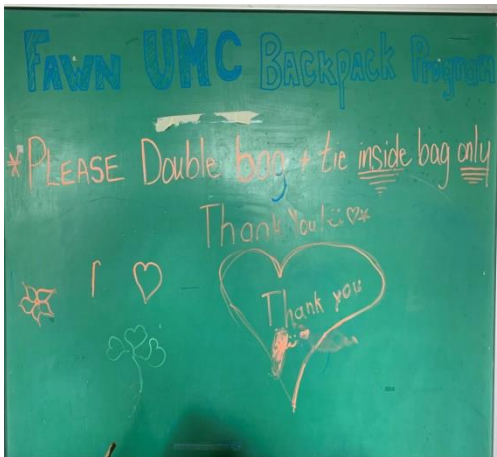 FAWN UMC BACKPACK Program
*PLEASE Double bag + tie inside bag only
Thank You! ♡*
Thank you